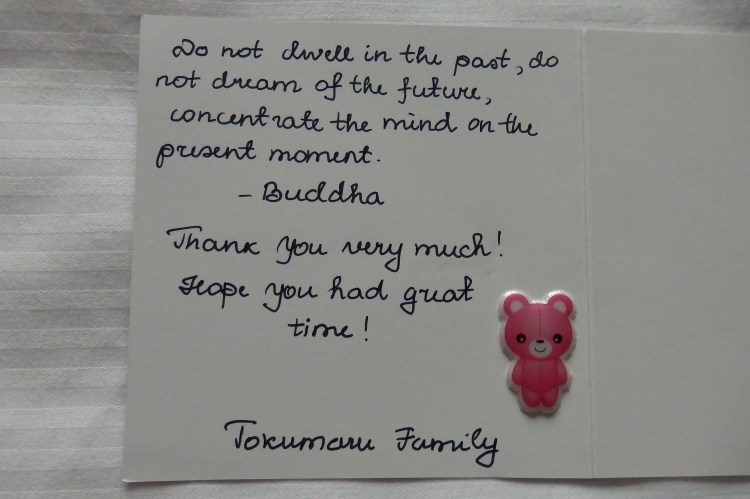 Do not dwell in the past, do
not dream of the future,
concentrate the mind on the
present moment.
- Buddha
Thank you very much!
Hope you had great
time!
Tokumaru Family